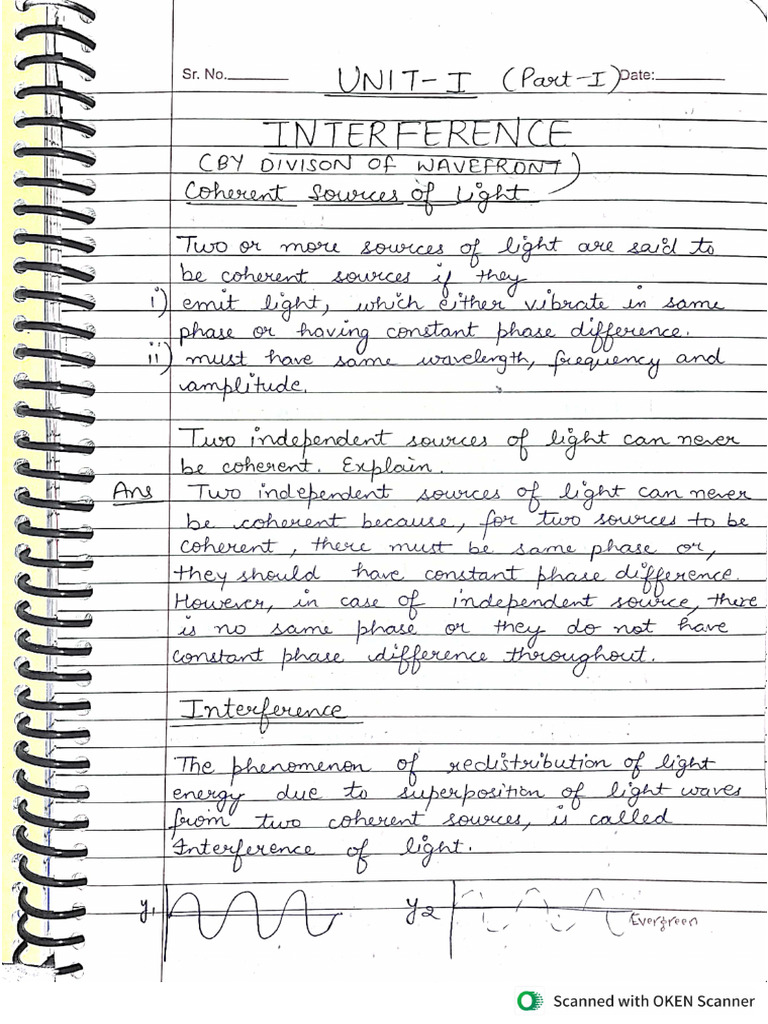 Sr. No. UNIT-I (Part-I) Date:
INTERFERENCE
(BY DIVISON OF WAVEFRONT)
Coherent Sources of Light
Two or more sources of light are said to
be coherent sources if they
i) emit light, which either vibrate in same
phase or having constant phase difference.
ii) must have same wavelength, frequency and
amplitude.
Two independent sources of light can never
be coherent. Explain.
Ans Two independent sources of light can never
be coherent because, for two sources to be
coherent, there must be same phase or,
they should have constant phase difference.
However, in case of independent source, there
is no same phase or they do not have
constant phase difference throughout.
Interference
The phenomenon of redistribution of light
energy due to superposition of light waves
from two coherent sources, is called
Interference of light.
y1 y2 Evergreen
Scanned with OKEN Scanner